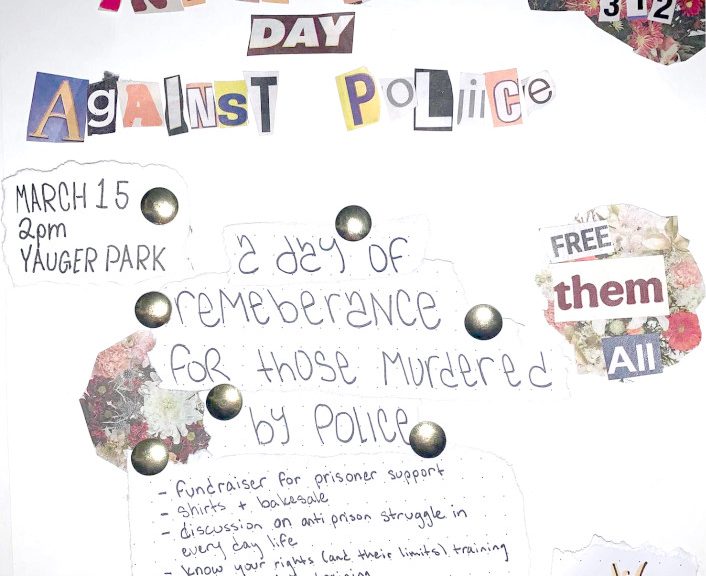 312
DAY
AgAINST PoLiiCe
MARCH 15
2pm
YAUGER PARK
a day of
remeberance
for those murdered
by police
FREE
them
All
- fundraiser for prisoner support
- shirts + bakesale
- discussion on anti prison struggle in
every day life
- know your rights (and their limits) training
training